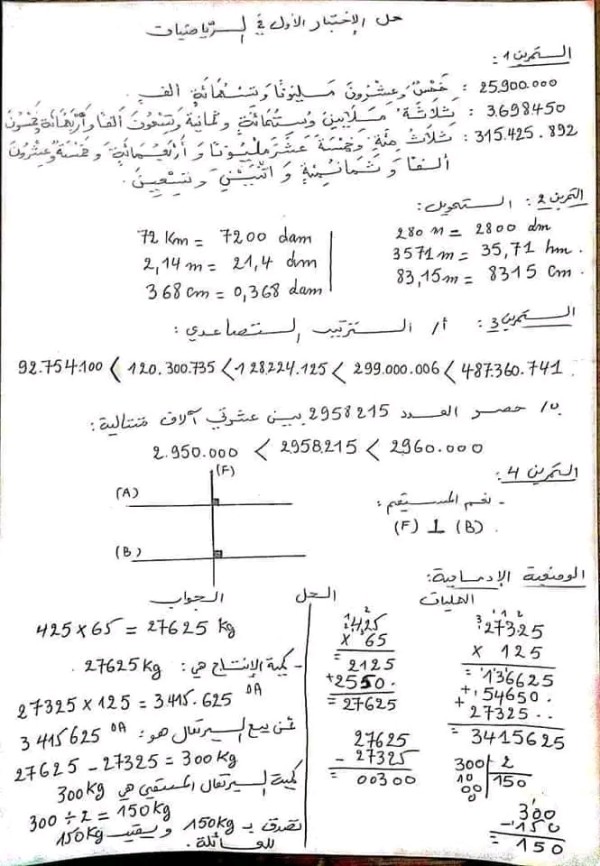 حل الإختبار الأول في الرياضيات
التمرين 1:
25.900.000 : خمس وعشرون مليونا وتسعمائة ألف.
3.698450 : ثلاثة ملايين وستمائة وثمانية وتسعون ألفا وأربعمائة وخمسون
315.425.892 : ثلاث مئة وخمسة عشر مليونا و أربعمائة و خمسة وعشرون
ألفا و ثمانمئة و اثنين و تسعين.
التمرين 2: التحويل:
280 m = 2800 dm
72 Km = 7200 dam
3571 m = 35,71 hm.
2,14 m = 21,4 dm
83,15 m = 8315 Cm.
368 cm = 0,368 dam
التمرين 3: أ/ الترتيب التصاعدي:
92.754.100 < 120.300.735 < 128.224.125 < 299.000.006 < 487.360.741.
ب/ حصر العدد 2958215 بين عشرتي آلاف متتالية:
2.950.000 < 2958.215 < 2960.000
التمرين 4:
(F)
(A)
- نعم المستقيم:
(F) ⊥ (B).
(B)
الوضعية الإدماجية:
العمليات
الحل
الجواب
425 × 65 = 27625 kg
- كمية الإنتاج هي: 27625 kg.
27325 × 125 = 3.415.625 DA
ثمن بيع البرتقال هو: 3 415625 DA
27625 - 27325 = 300 kg
كمية البرتقال المتبقي هي 300 kg
300 ÷ 2 = 150 kg
تصدق بـ 150 kg و بقيت 150 kg
للعائلة.
425
× 65
= 2125
+ 2550.
= 27625
27625
- 27325
= 00300
27325
× 125
= 136625
+ 54650.
+ 27325..
= 3415625
300 | 2
10 | 150
00
300
- 150
= 150